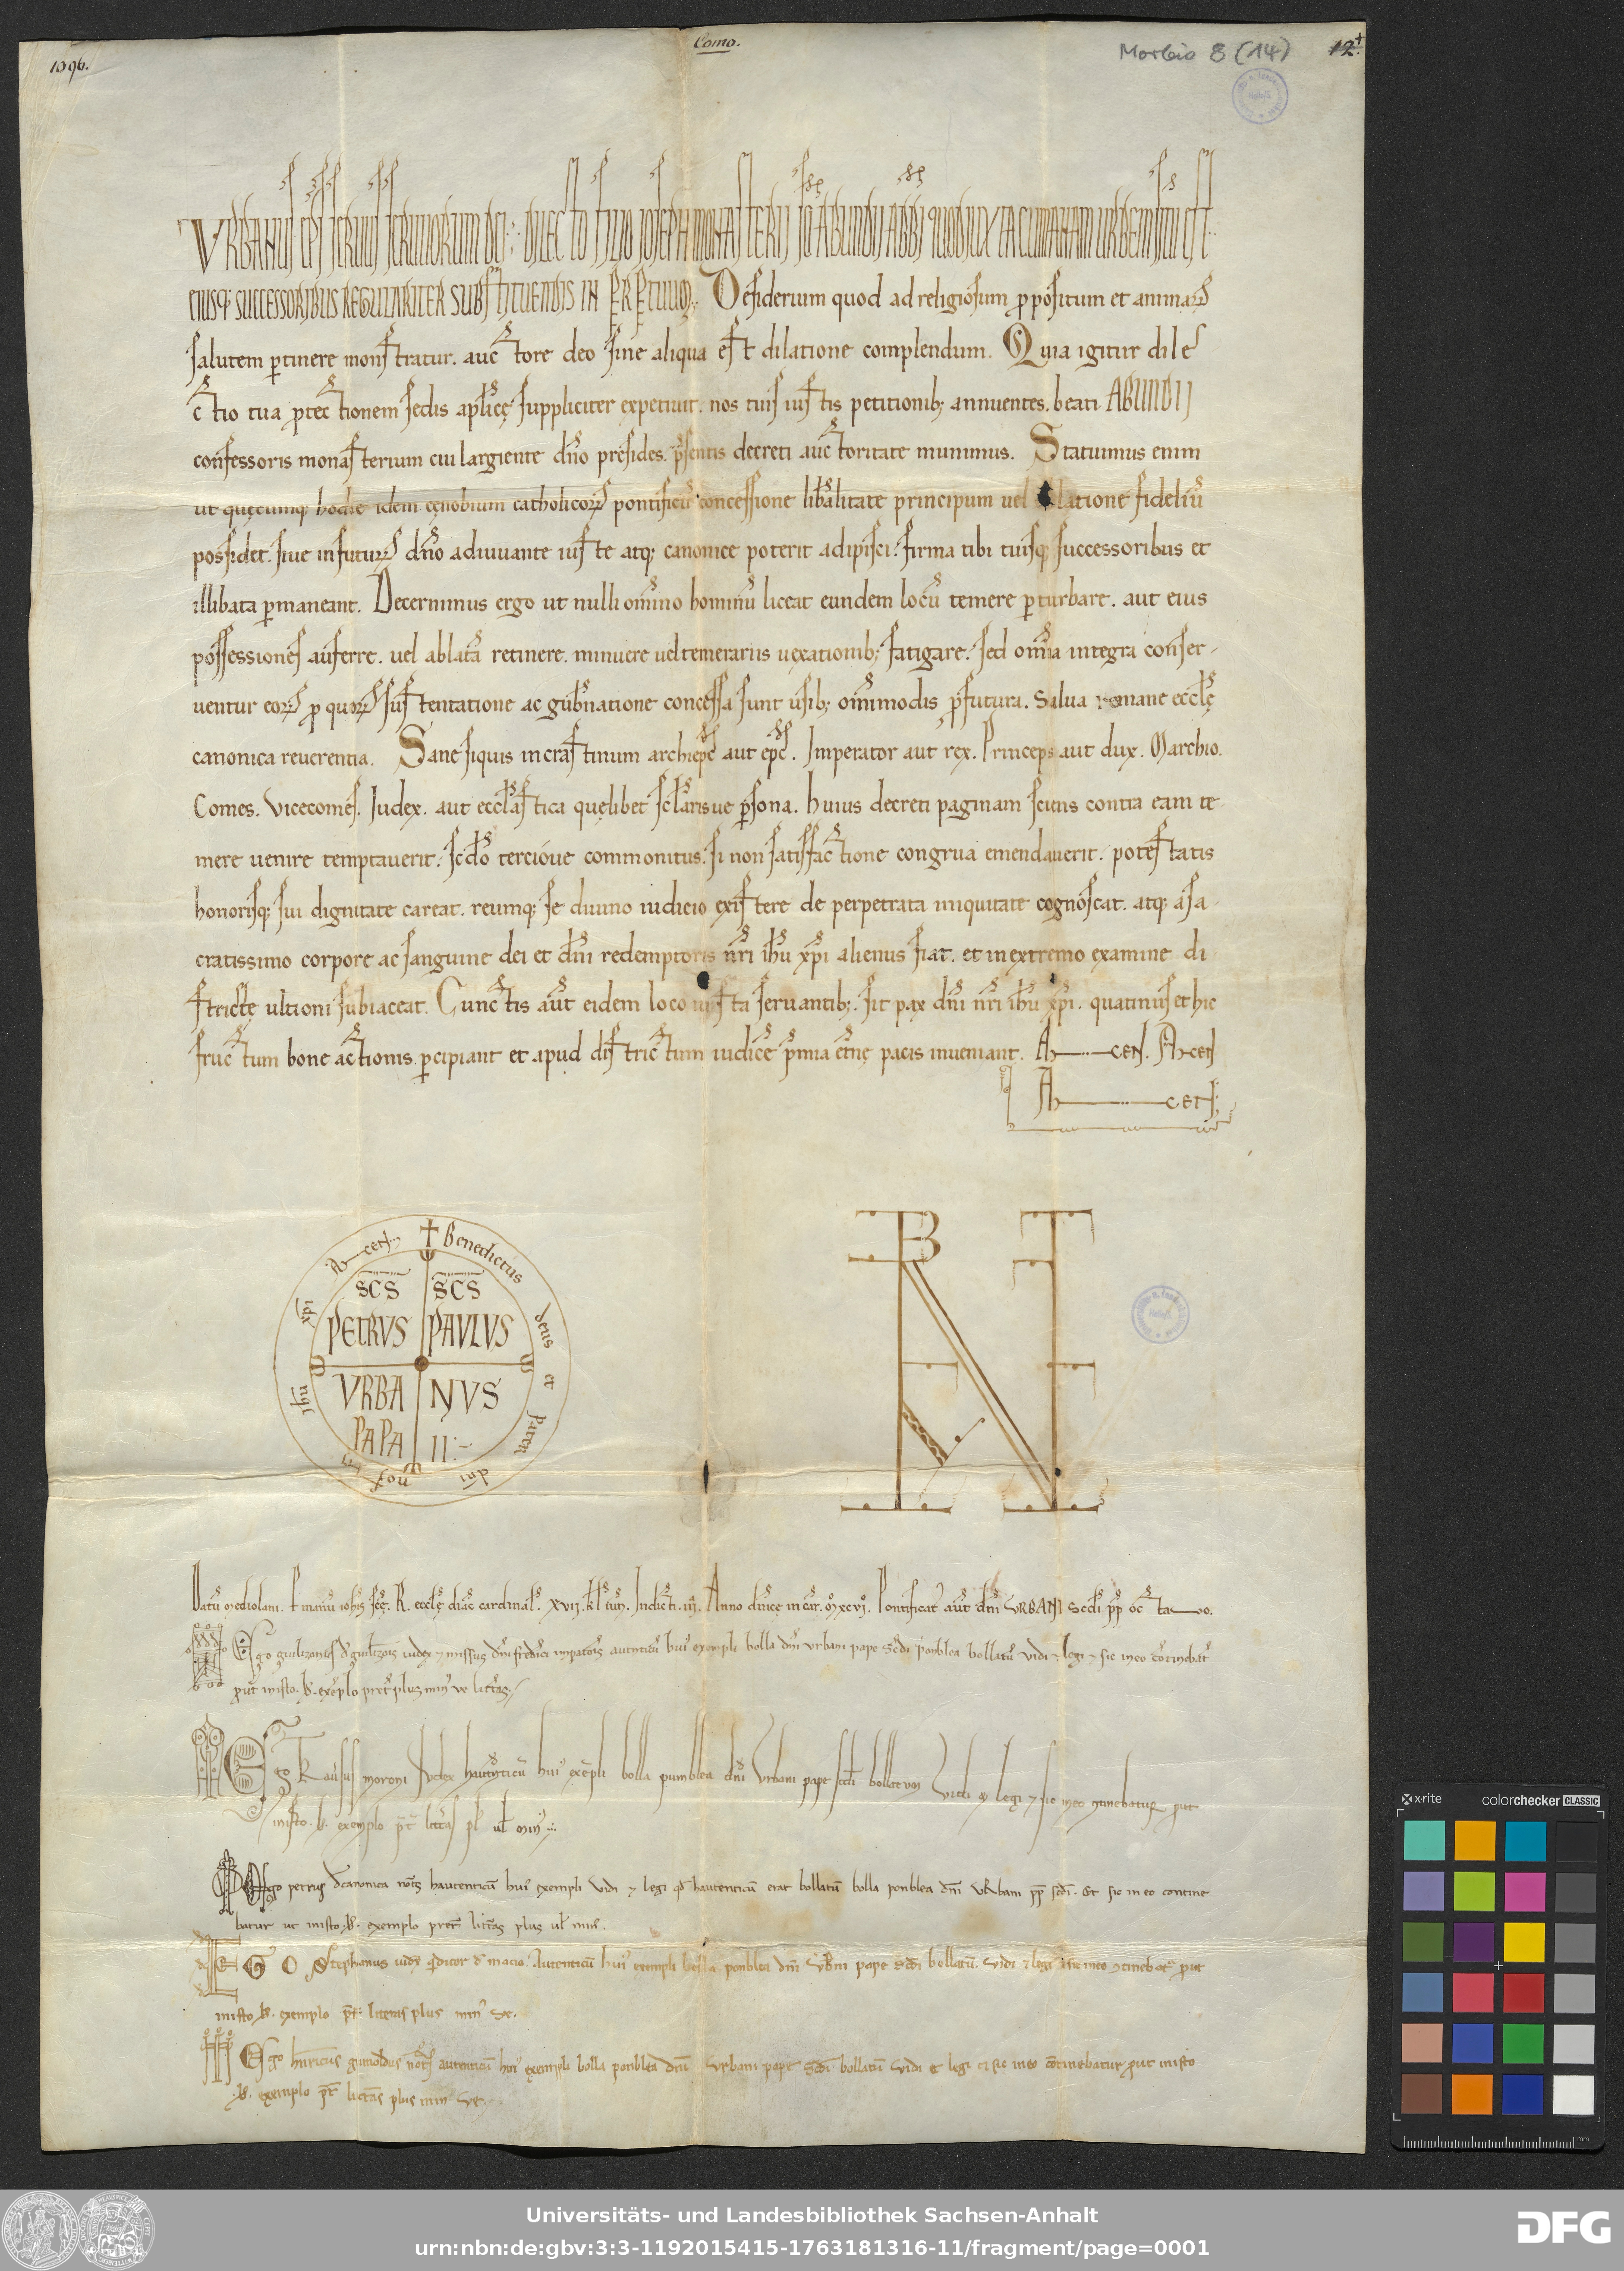 1096.
Como.
Morbio 8 (14)
12.
URBANUS EPS SERVUS SERVORUM DEI. DILECTO FILIO IOSEPH MONASTERII SCI ABUNDII ABBI QUOD IUXTA CUMANAM URBEM SITU EST.
EIUSQ; SUCCESSORIBUS REGULARITER SUBSTITUENDIS IN PERPETUUM. Desiderium quod ad religiosum ppositum et animarꝝ
salutem ꝑtinere monstratur. auctore deo sine aliqua est dilatione complendum. Quia igitur dile
ctio tua ꝓtectionem sedis aplicę suppliciter expetiuit. nos tuis iustis petitionib; annuentes. beati ABUNDII
confessoris monasterium cui largiente dño presides. p̃sentis decreti auctoritate munimus. Statuimus enim
ut quęcumq; hodie idem cęnobium catholicoꝝ pontificũ concessione libalitate principum uel latione fideliũ
possidet. siue in futuꝝ dño adiuuante iuste atq; canonice poterit adipisci. firma tibi tuisq; successoribus et
illibata ꝑmaneant. Decernimus ergo ut nulli omino hominũ liceat eundem locũ temere ꝑturbare. aut eius
possessiones auferre. uel ablata retinere. minuere uel temerariis uexationib; fatigare. sed omia integra conser-
uentur eoꝝ ꝓ quoꝝ sustentatione ac gubnatione concessa sunt usib; omimodis ꝓfutura. Salua romane ecclę
canonica reuerentia. Sane siquis in crastinum archiepc aut epc. Imperator aut rex. Princeps aut dux. Marchio.
Comes. Vicecomes. Iudex. aut ecclastica quęlibet sclarisue ꝑsona. huius decreti paginam sciens contra eam te-
mere uenire temptauerit. scdo tercioue commonitus. si non satisfactione congrua emendauerit. potestatis
honorisq; sui dignitate careat. reumq; se diuino iudicio existere de perpetrata iniquitate cognoscat. atq; a sa-
cratissimo corpore ac sanguine dei et dñi redemptoris nri ihu xpi alienus fiat. et in extremo examine di-
strictę ultioni subiaceat. Cunctis aut eidem loco iusta seruantib;. sit pax dñi nri ihu xpi. quatinus et hic
fructum bone actionis ꝑcipiant et apud districtum iudice p̃mia etnę pacis inueniant. AMEN. AMEN
AMEN.
+ Benedictus deus et pater dñi nostri ihu xpi Amen
SCS SCS
PETRUS PAULUS
URBA NUS
PAPA II
Datũ Mediolani. P manũ iohis scę. R. ecclę diac cardinal. XVII. kl iun. Indict. IIII. Anno diuicę incar. MXCVI. Pontificat aut dñi URBANI Scdi pp octavo.
Ego guilizonus de guilizois iudex et missus dñi fredici inpatoris autenticũ huius exempli bolla dñi urbani pape scdi ponblea bollatũ uidi et legi et sic in eo continebat
put in isto. b. exeplo preter plus minusve litteras.
Ego morsus moroni Iudex hautenticũ hui exepli bolla pumblea dñi Urbani pape scdi bollatum Vidi et legi et sic in eo continebatur put
in isto. b. exemplo pt litteras pl ul min.
Ego petrus de canonica notus hautenticũ hui exempli Vidi et legi qd hautenticũ erat bollatũ bolla ponblea dñi URbani pp scdi. Et sic in eo contine
batur ut in isto. b. exemplo preter litteras plus ul min.
EGO Stephanus iudex qdicor de macio. Autenticũ hui exempli bolla ponblea dñi Urbni pape scdi bollatũ. Vidi et legi et sic in eo continebat put
in isto b. exemplo pt litteras plus min ve.
Ego henricus grimoldus notus autenticũ hui exempli bolla ponblea dñi Urbani pape scdi bollatũ Vidi et legi et sic in eo continebatur put in isto
b. exemplo pt litteras plus min ve.
x-rite colorchecker CLASSIC
mm
Universitäts- und Landesbibliothek Sachsen-Anhalt
urn:nbn:de:gbv:3:3-1192015415-1763181316-11/fragment/page=0001
DFG